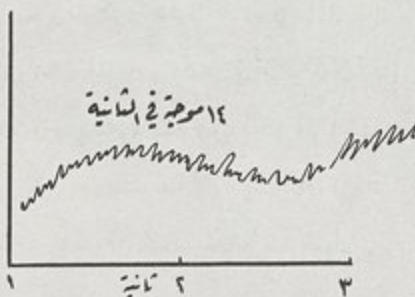 ١٤ موجة في الثانية
١ ثانية ٢ ٣